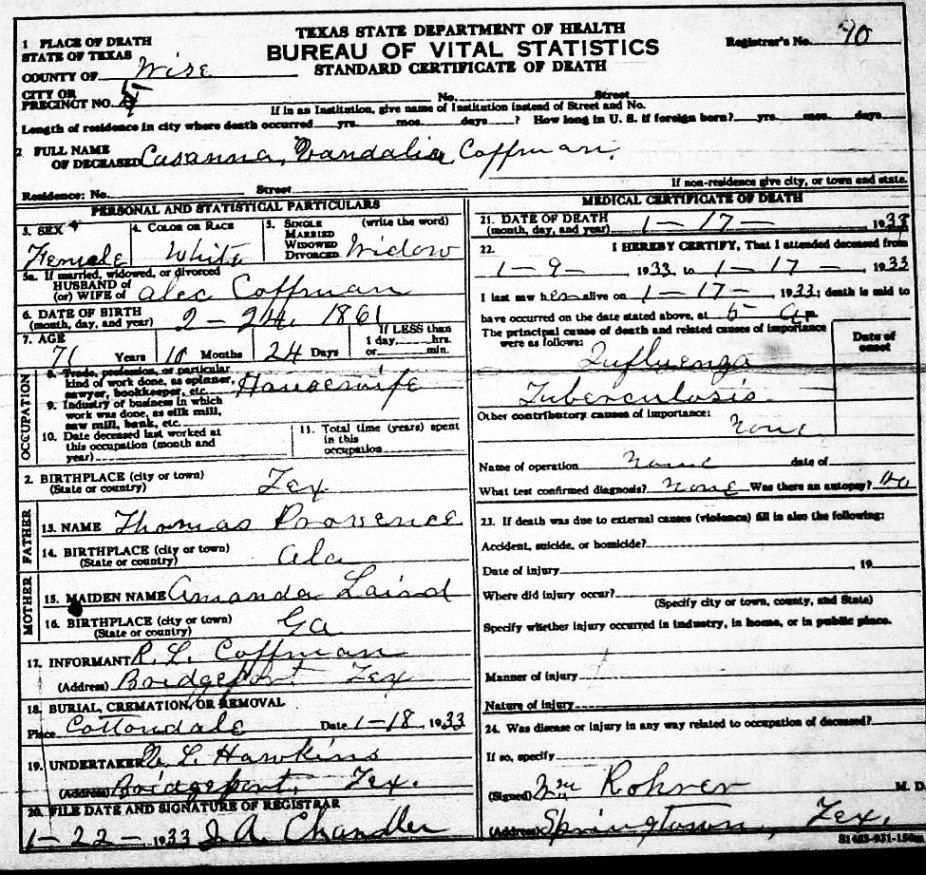 TEXAS STATE DEPARTMENT OF HEALTH
BUREAU OF VITAL STATISTICS
STANDARD CERTIFICATE OF DEATH
Registrar's No. 90
1 PLACE OF DEATH
STATE OF TEXAS
COUNTY OF Wise
CITY OR
PRECINCT NO. 5 No. Street
If in an Institution, give name of Institution instead of Street and No.
Length of residence in city where death occurred yrs. mos. days ? How long in U. S. if foreign born? yrs. mos. days
2 FULL NAME
OF DECEASED Casanna, Vandalia Coffman.
Residence: No. Street
If non-residence give city, or town and state.
PERSONAL AND STATISTICAL PARTICULARS
3. SEX Female
4. COLOR OR RACE White
5. SINGLE (write the word)
MARRIED
WIDOWED
DIVORCED Widow
5a. If married, widowed, or divorced
HUSBAND of
(or) WIFE of Alec Coffman
6. DATE OF BIRTH
(month, day, and year) 2-24, 1861
7. AGE
71 Years 10 Months 24 Days If LESS than
1 day, hrs.
or min.
OCCUPATION
8. Trade, profession, or particular
kind of work done, as spinner,
sawyer, bookkeeper, etc. Housewife
9. Industry of business in which
work was done, as silk mill,
saw mill, bank, etc.
10. Date deceased last worked at
this occupation (month and
year)
11. Total time (years) spent
in this
occupation
2. BIRTHPLACE (city or town)
(State or country) Tex
FATHER
13. NAME Thomas Provence
14. BIRTHPLACE (city or town)
(State or country) Ala
MOTHER
15. MAIDEN NAME Amanda Laird
16. BIRTHPLACE (city or town)
(State or country) Ga
17. INFORMANT R. L. Coffman
(Address) Bridgeport Tex
18. BURIAL, CREMATION, OR REMOVAL
Place Cottondale Date 1-18, 1933
19. UNDERTAKER L. Hawkins
(Address) Bridgeport, Tex.
20. FILE DATE AND SIGNATURE OF REGISTRAR
1-22-1933 J. A. Chandler
MEDICAL CERTIFICATE OF DEATH
21. DATE OF DEATH
(month, day, and year) 1-17- 1933
22. I HEREBY CERTIFY, That I attended deceased from
1-9- 1933, to 1-17- 1933
I last saw her alive on 1-17-, 1933; death is said to
have occurred on the date stated above, at 5- a m
The principal cause of death and related causes of importance
were as follows:
Date of
onset
Influenza
Tuberculosis
Other contributory causes of importance:
None
Name of operation None date of
What test confirmed diagnosis? None Was there an autopsy? No
23. If death was due to external causes (violence) fill in also the following:
Accident, suicide, or homicide?
Date of injury , 19
Where did injury occur?
(Specify city or town, county, and State)
Specify whether injury occurred in industry, in home, or in public place.
Manner of injury
Nature of injury
24. Was disease or injury in any way related to occupation of deceased?
If so, specify
(Signed) Rohrer M. D.
(Address) Springtown, Tex.